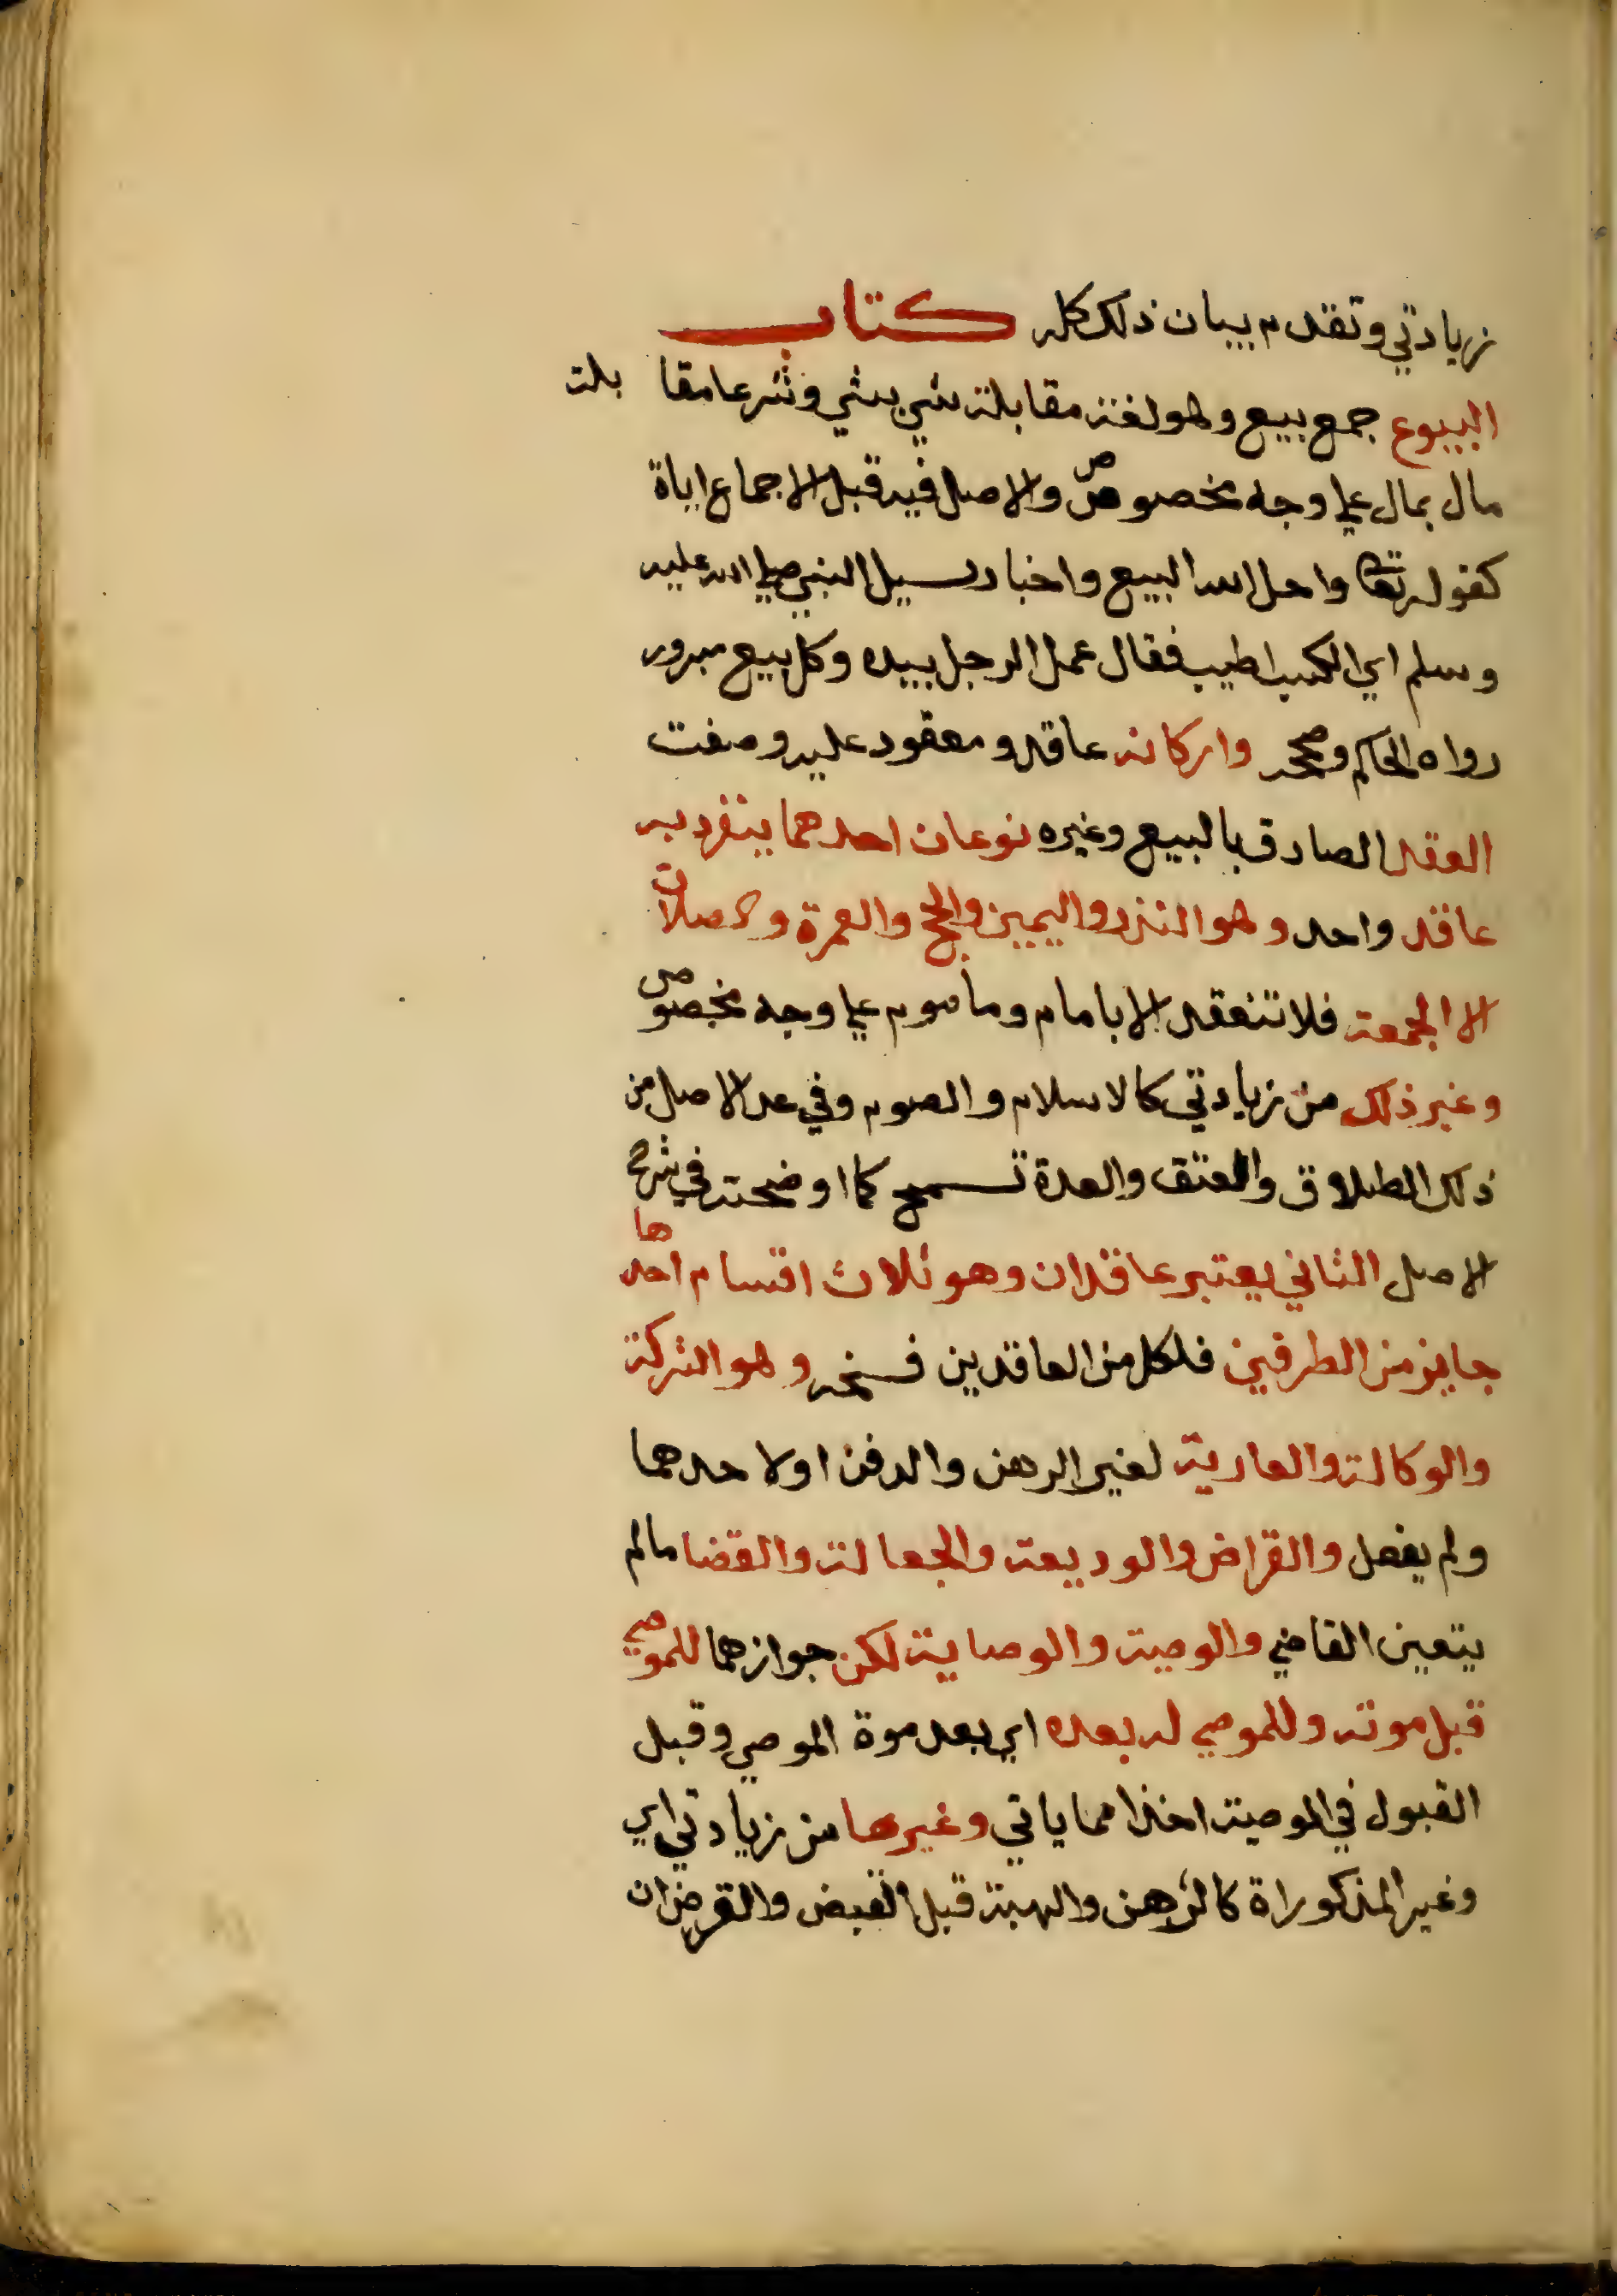 زيادتي وتقدم بيان ذلك كله كتاب
البيوع جمع بيع وهو لغة مقابلة شي بشي وشرعا مقا بلة
مال بمال علي وجه مخصوص والاصل فيه قبل الاجماع اياة
كقوله تعالى واحل الله البيع واخبار سيل النبي صلي الله عليه
وسلم اي الكسب اطيب فقال عمل الرجل بيده وكل بيع مبرور
رواه الحاكم وصححه واركانه عاقد ومعقود عليه وصفت
العقد الصادق بالبيع وغيره نوعان احدهما ينفرد به
عاقد واحد وهو النذر واليمين والحج والعمرة والصلات
الا الجمعة فلا تنعقد الا بامام وماموم علي وجه مخصوص
وغير ذلك من زيادتي كالاسلام والصوم وفي عد الاصل من
ذلك الطلاق والعتق والعدة تسمح كما اوضحته في شرح
الاصل الثاني يعتبر عاقدان وهو ثلاث اقسام احدها
جايز من الطرفين فلكل من العاقدين فسخه وهو الشركة
والوكالة والعارية لغير الرهن والدفن او لاحدهما
ولم يفعل والقراض والوديعة والجعالة والقضا مالم
يتعين القاضي والوصية والوصاية لكن جوازهما للموصي
قبل موته وللموصي له بعده اي بعد موة الموصي وقبل
القبول في الموصية اخذا مما ياتي وغيرها من زيادتي اي
وغير المذكوراة كالرهن والهبة قبل القبض والقرض ان